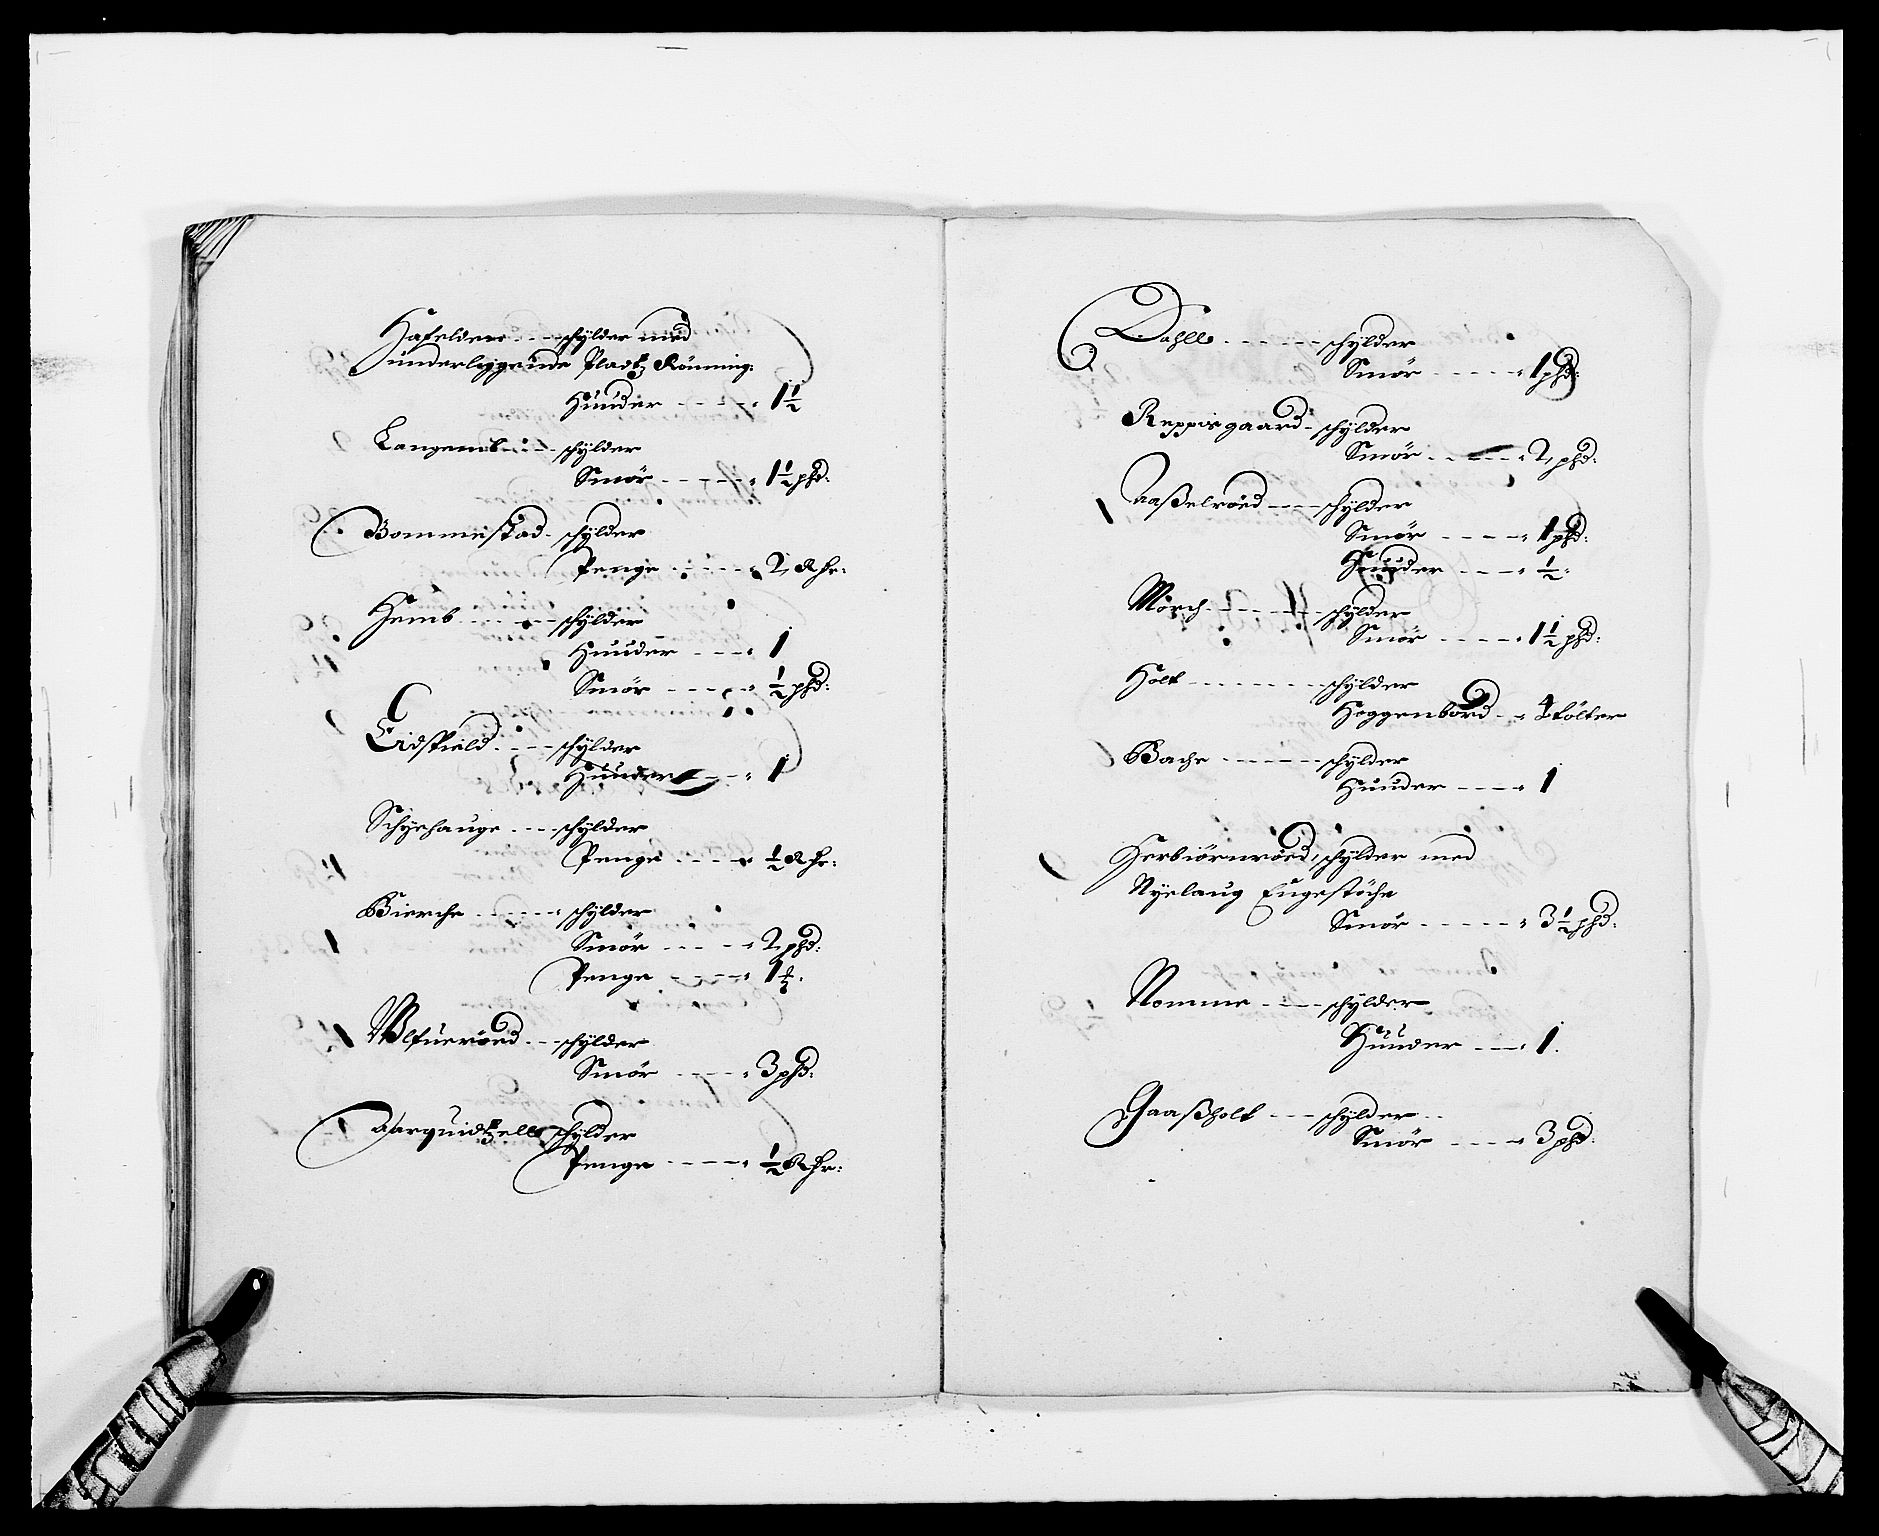 Hafelden - - - schylder med
underliggende Pladtz Rönning:
Huuder - - - - - 1½
Langemb - - - schylder
Smör - - - - - 1½ phd:
Bommestad - schylder
Penge - - - - - 2 Rhr:
Hemb - - - - - schylder
Huuder - - - - 1
Smör - - - - - ½ phd:
Eidsfield - - - - schylder
Huuder - - - 1
Schyehauge - - - schylder
Penge - - - - - ½ Rhr:
Bierche - - - - - schylder
Smör - - - - - 2 phd:
Penge - - - - -
schylder
Smör - - - - - 3 phd:
Aarquidtzell schylder
Penge - - - - - ½ Rhr:
Dahll - - - - - - schylder
Smör - - - - - 1 phd:
Reppisgaard - schylder
Smör - - - - - 2 phd:
Aaßelröed - - - schylder
Smör - - - - - 1 phd:
Huuder - - - - ½:
Mörch - - - - - - schylder
Smör - - - - - 1½ phd:
Holt - - - - - - - schylder
Hoggenbord - - 4 Tölter
Bache - - - - - - schylder
Huuder - - - - 1
Herbiörnröed, schylder med
Nyelaug Engestöche
Smör - - - - - - 3½ phd:
Nomme - - - - schylder
Huuder - - - - 1.
Gaaßholt - - - schylder - -
Smör - - - - - 3 phd: